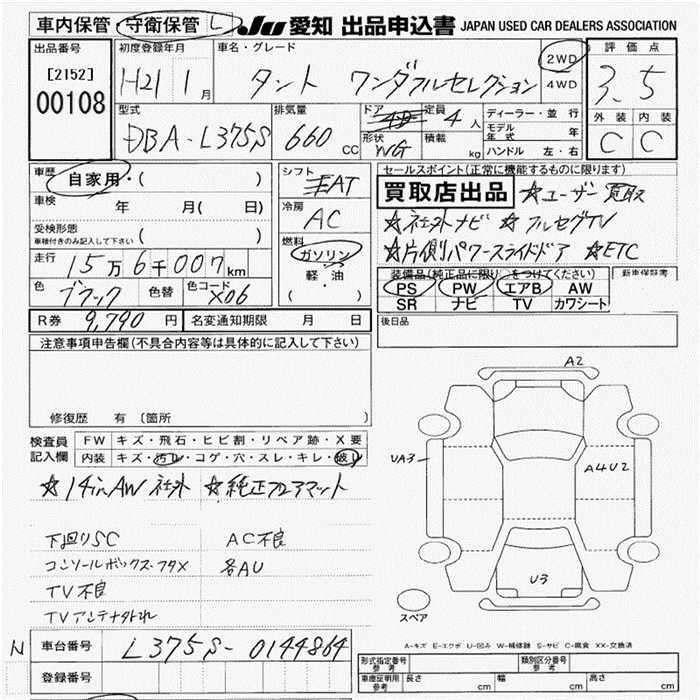 車内保管・守衛保管 L JU 愛知 出品申込書 JAPAN USED CAR DEALERS ASSOCIATION
出品番号 初度登録年月 車名・グレード 評価点
[2152] H21 1月 タント ワンダフルセレクション 2WD 4WD 3.5
00108
型式 排気量 ドア 定員 ディーラー・並行 外装 内装
DBA-L375S 660 CC 4D 4人 モデル年式 年 C C
形状 WG 積載 kg ハンドル 左・右
車歴 自家用・( ) シフト FAT セールスポイント(正常に機能するものに限ります)
買取店出品 ☆ユーザー買取
車検 年 月( 日) 冷房 AC ☆社外ナビ ☆フルセグTV
受検形態
車検付きのみ記入して下さい ( ) 燃料 ☆片側パワースライドドア ☆ETC
走行 15万6千007km ガソリン 軽・油 ( ・ ) 装備品(純正品に限り○をつけてください) 新車保証書
色 ブラック 色替 色コード X06 PS PW エアB AW
SR ナビ TV カワシート
R券 9,790円 名変通知期限 月 日 後日品
注意事項申告欄(不具合内容等は具体的に記入して下さい)
修復歴 有 〔箇所
検査員記入欄 FW キズ・飛石・ヒビ割・リペア跡・X要
内装 キズ・汚レ・コゲ・穴・スレ・キレ・破レ
☆14inAW社外 ☆純正フロアマット
下廻りSC AC不良
コンソールボックス・フタX 各AU
TV不良
TVアンテナ外れ
A2
UA3
A4U2
U3
スペア
A-キズ E-エクボ U-凹み W-補修跡 S-サビ C-腐食 XX-交換済
N 車台番号 L375S-0144864
登録番号
形式指定番号 参考 類別区分番号 参考
車庫証明用 参考 長さ cm 幅 cm 高さ cm